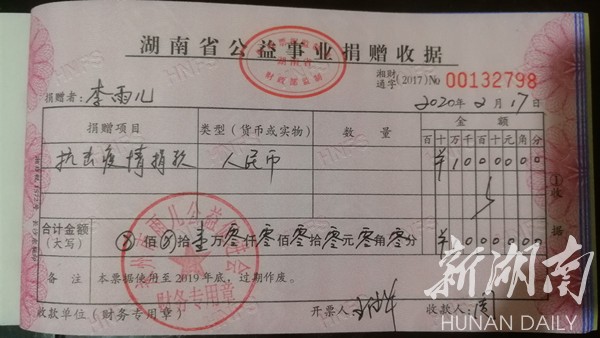 湖南省公益事业捐赠收据
财政部监制
湘财通字(2017)No 00132798
捐赠者:李雨儿 2020年2月17日
捐赠项目 类型(货币或实物) 数量 金额
百十万千百十元角分
抗击疫情捐款 人民币 ¥1000000
合计金额(大写) ⊗佰⊗拾壹万零仟零佰零拾零元零角零分 ¥1000000
①收据
备注 本票据使用至2019年底,过期作废。
财务专用章
收款单位(财务专用章) 开票人: 收款人:周
新湖南
HUNAN DAILY